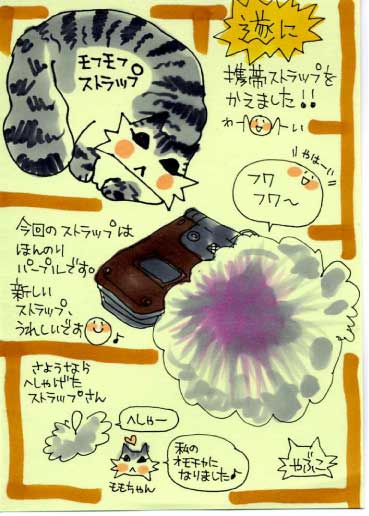 モフモフ
ストラップ
遂に
携帯ストラップを
かえました!!
わーい
やはー
フワ
フワ〜
今回のストラップは
ほんのり
パープルです。
新しい
ストラップ、
うれしいです♪
さようなら
へしゃげた
ストラップさん
へしゃー
ももちゃん
私の
オモチャに
なりました♪
やぶこ